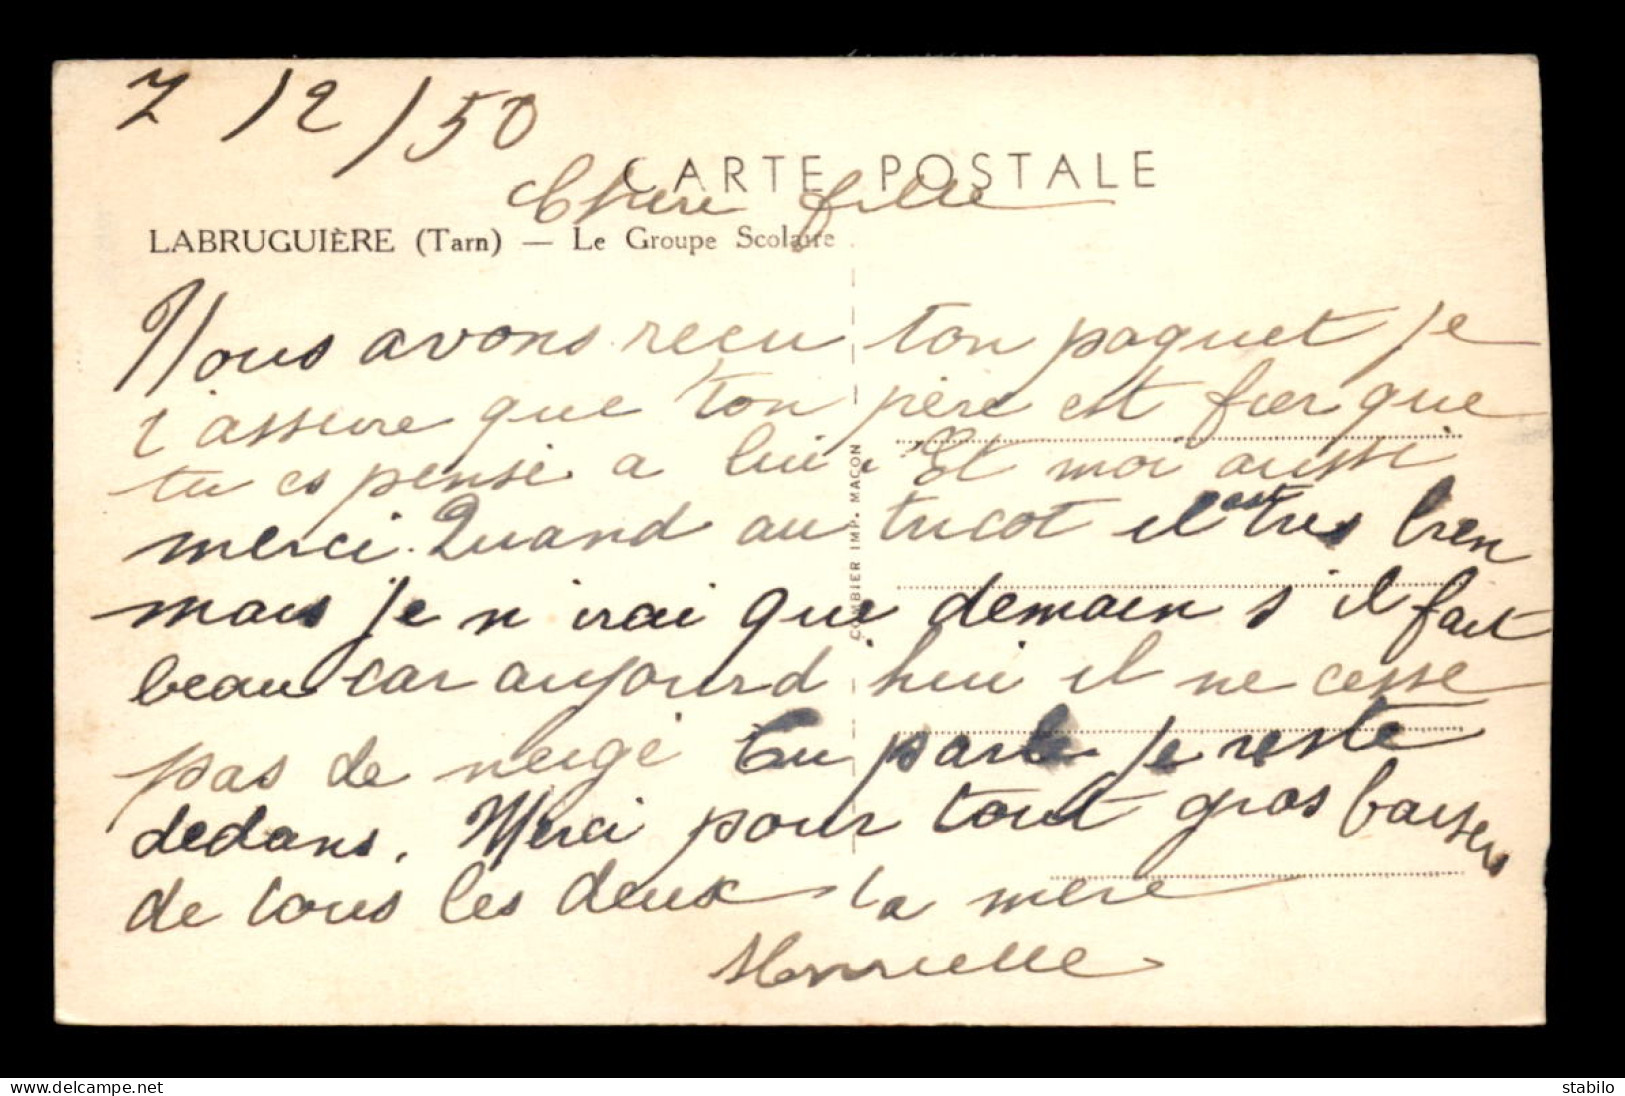 7/2/50
CARTE POSTALE
Chère fille
LABRUGUIÈRE (Tarn) — Le Groupe Scolaire
Nous avons recu ton paquet je
t'assure que ton père est fier que
tu es pensé a lui. Et moi aussi
merci. Quand au tricot il est tres bien
mais je n irai que demain s'il fait
beau car aujourd'hui il ne cesse
pas de neige tu parle je reste
dedans. Merci pour tout gros baisers
de tous les deux ta mère
Henriette
COMBIER IMP. MACON
delcampe.net
stabilo